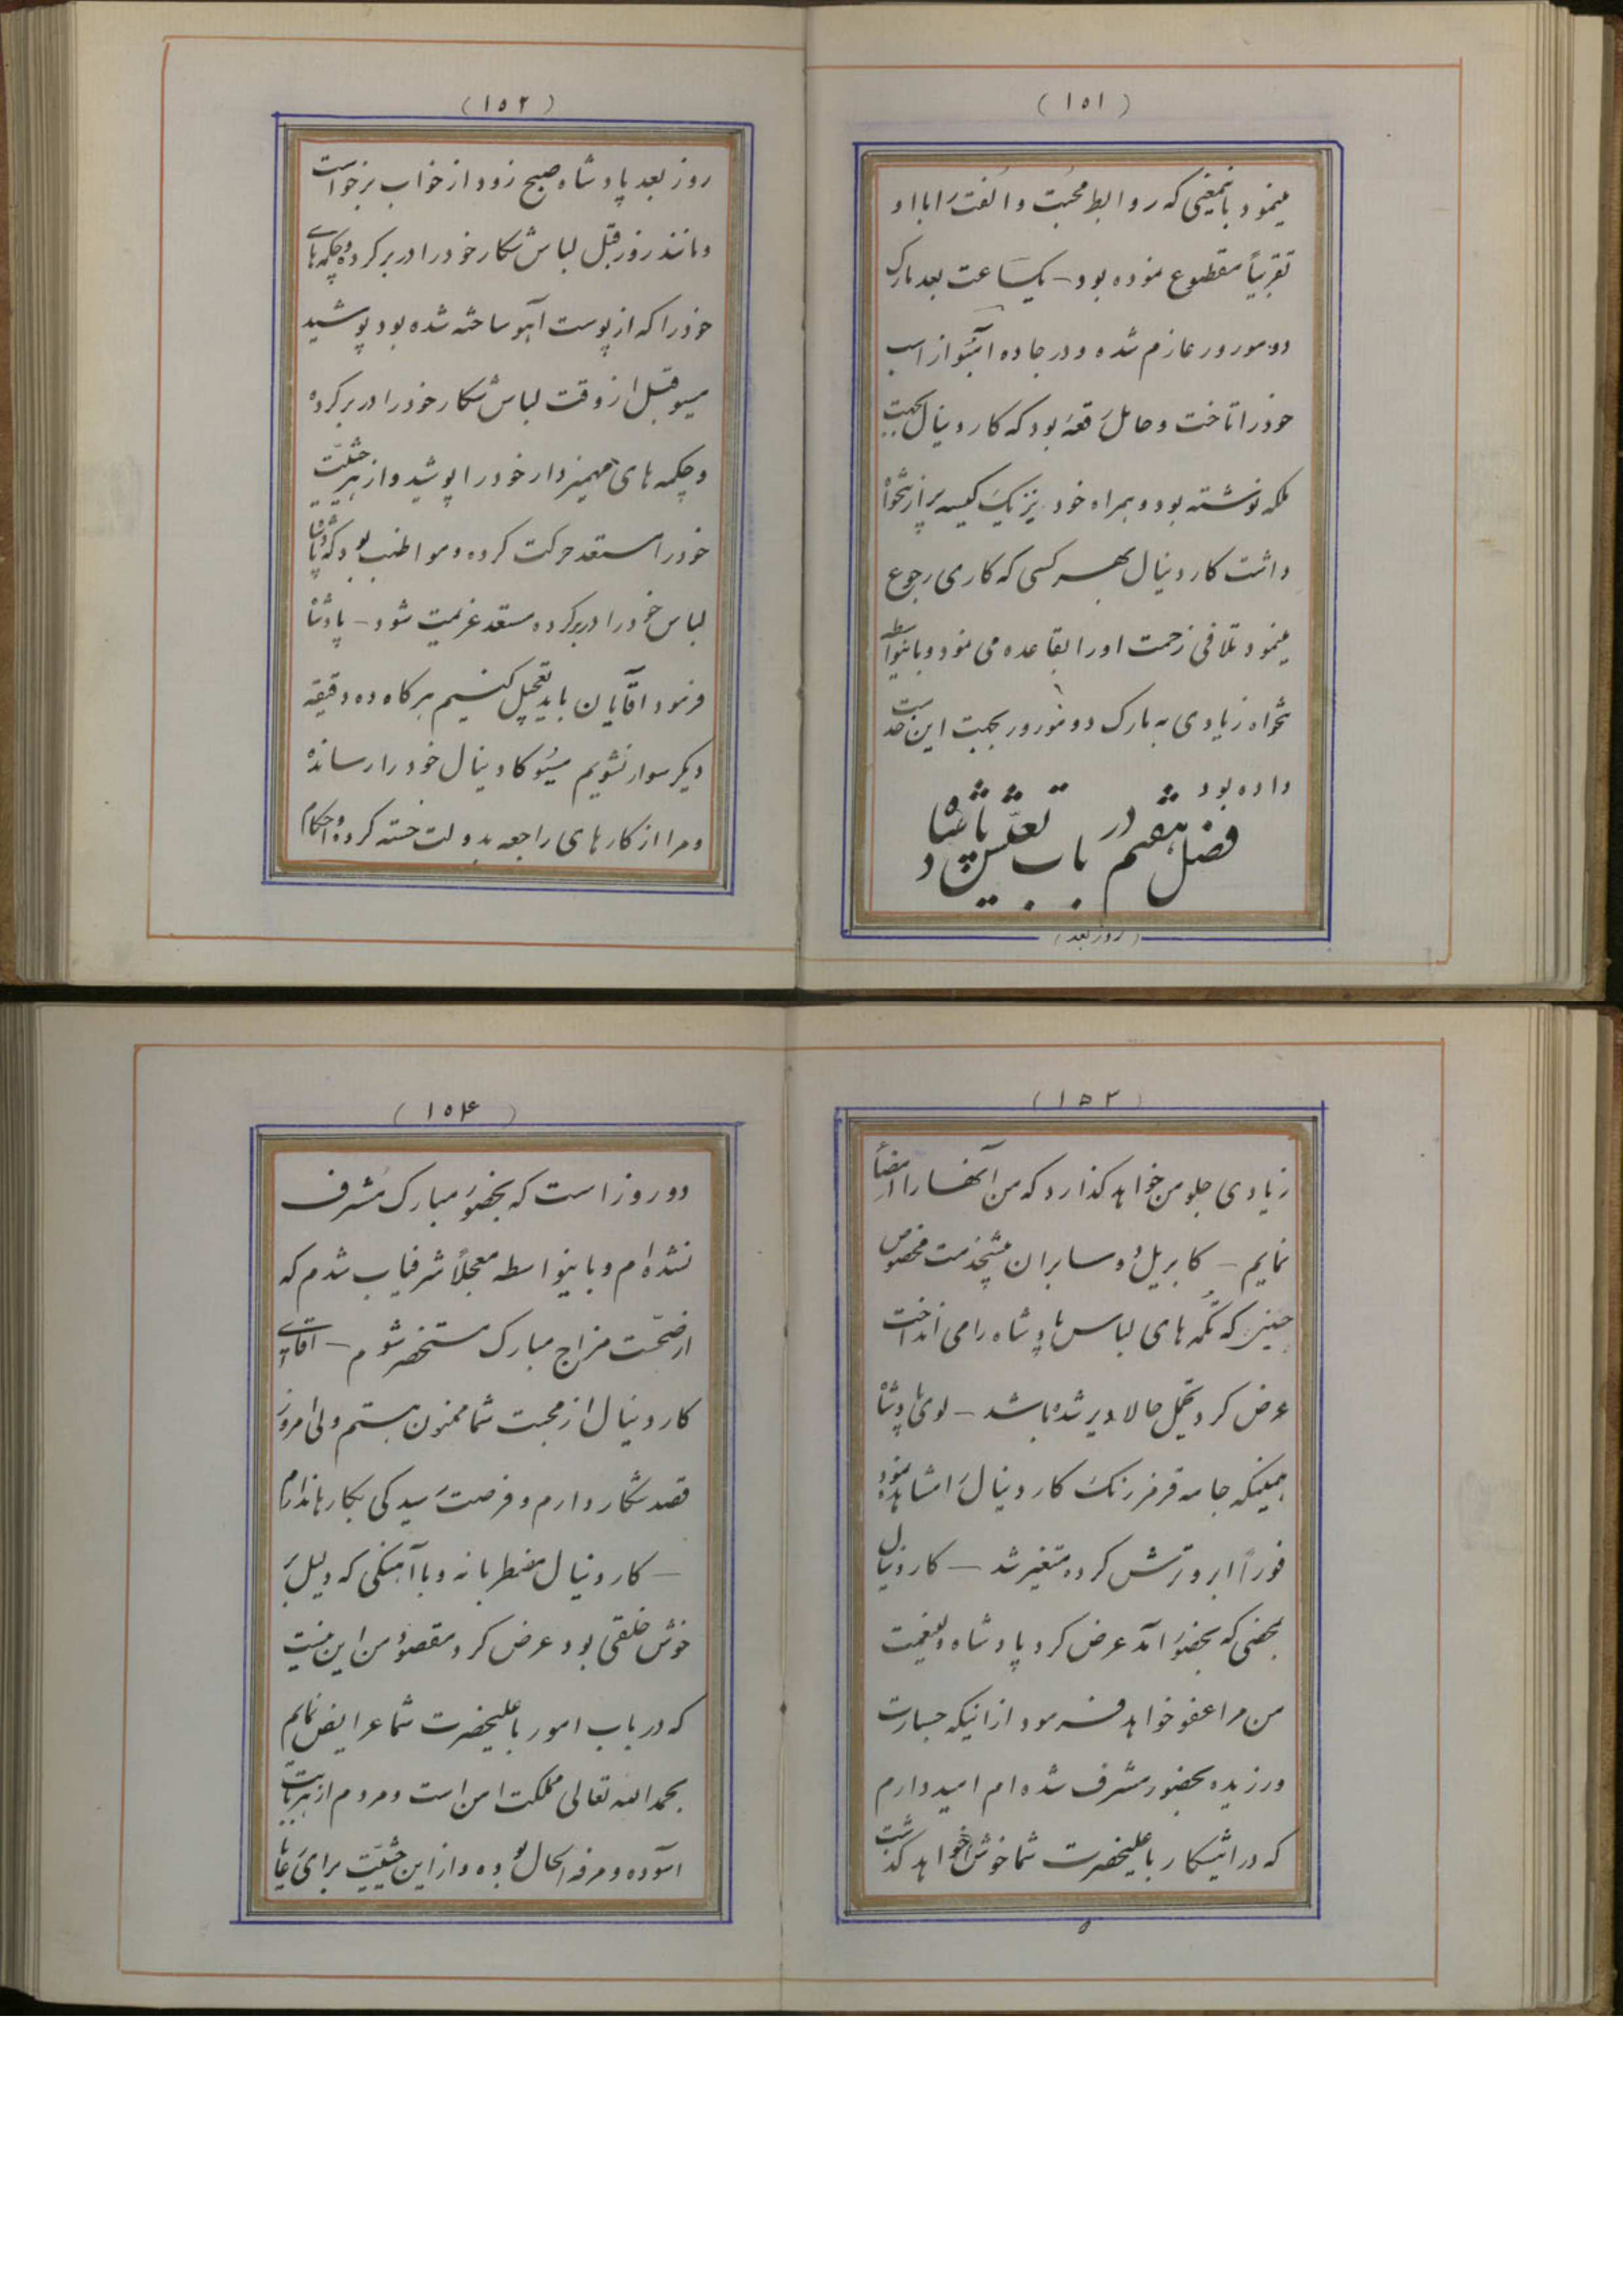 (۱۵۱)
مینمود باینمعنی که روابط محبت و الفت را با او
تقریباً مقطوع نموده بود - یکساعت بعد مارک
دو مورور عازم شده و در جاده آنبو از اسب
خود را تاخت و حامل رقعه بود که کاردینال بجهت
ملکه نوشته بود و بهمراه خود نیز یک کیسه پر از تنخواه
داشت کاردینال بهر کسی که کاری رجوع
مینمود تلافی زحمت او را بقاعده می نمود و باینواسطه
تنخواه زیادی به مارک دو مورور بجهت این خدمت
داده بود
فصل هفتم در باب تعیش پادشاه
(روز بعد)
(۱۵۲)
روز بعد پادشاه صبح زود از خواب برخواست
و مانند روز قبل لباس شکار خود را در بر کرده و چکمه های
خود را که از پوست آهو ساخته شده بود پوشید
میو قبل از وقت لباس شکار خود را در بر کرده
و چکمه های مهمیزدار خود را پوشید و از هر حیثیت
خود را مستعد حرکت کرده و مواظب بود که پادشاه
لباس خود را در بر کرده مستعد عزیمت شود - پادشاه
فرمود آقایان باید تعجیل کنیم هر کاه ده دقیقه
دیکر سوار نشویم میسو کادینال خود را رسانده
و مرا از کارهای راجعه بدولت خسته کرده و احکام
(۱۵۳)
زیادی جلو من خواهد کذارد که من آنها را امضأ
نمایم - کابریل دو سابران پیشخدمت مخصوص
حینی که تکمه های لباس پادشاه را می انداخت
عرض کرد تخیل حالا دیر شده باشد - لوئی پادشاه
همینکه جامه قرمز رنک کاردینال را مشاهده نمود
فوراً ابرو ترش کرده متغیر شد - کاردینال
بمحضی که بحضور آمد عرض کرد پادشاه ولینعمت
من مرا عفو خواهد فرمود از اینکه جسارت
ورزیده بحضور مشرف شده ام امیدوارم
که در این شکار باعلیحضرت شما خوش خواهد کذشت
(۱۵۴)
دو روز است که بحضور مبارک مشرف
نشده ام و باینواسطه معجلاً شرفیاب شدم که
از صحّت مزاج مبارک مستحضر شوم - آقای
کاردینال از محبت شما ممنون هستم ولی امروز
قصد شکار دارم و فرصت رسیدکی بکارها ندارم
- کاردینال مضطربانه و با آهنکی که دلیل بر
خوش خلقی بود عرض کرد مقصود من این نیست
که در باب امور باعلیحضرت شما عرایض نمایم
بحمد الله تعالی مملکت امن است و مردم از هر بابت
آسوده و مرفه الحال بوده و از این حیثیت برای رعایا